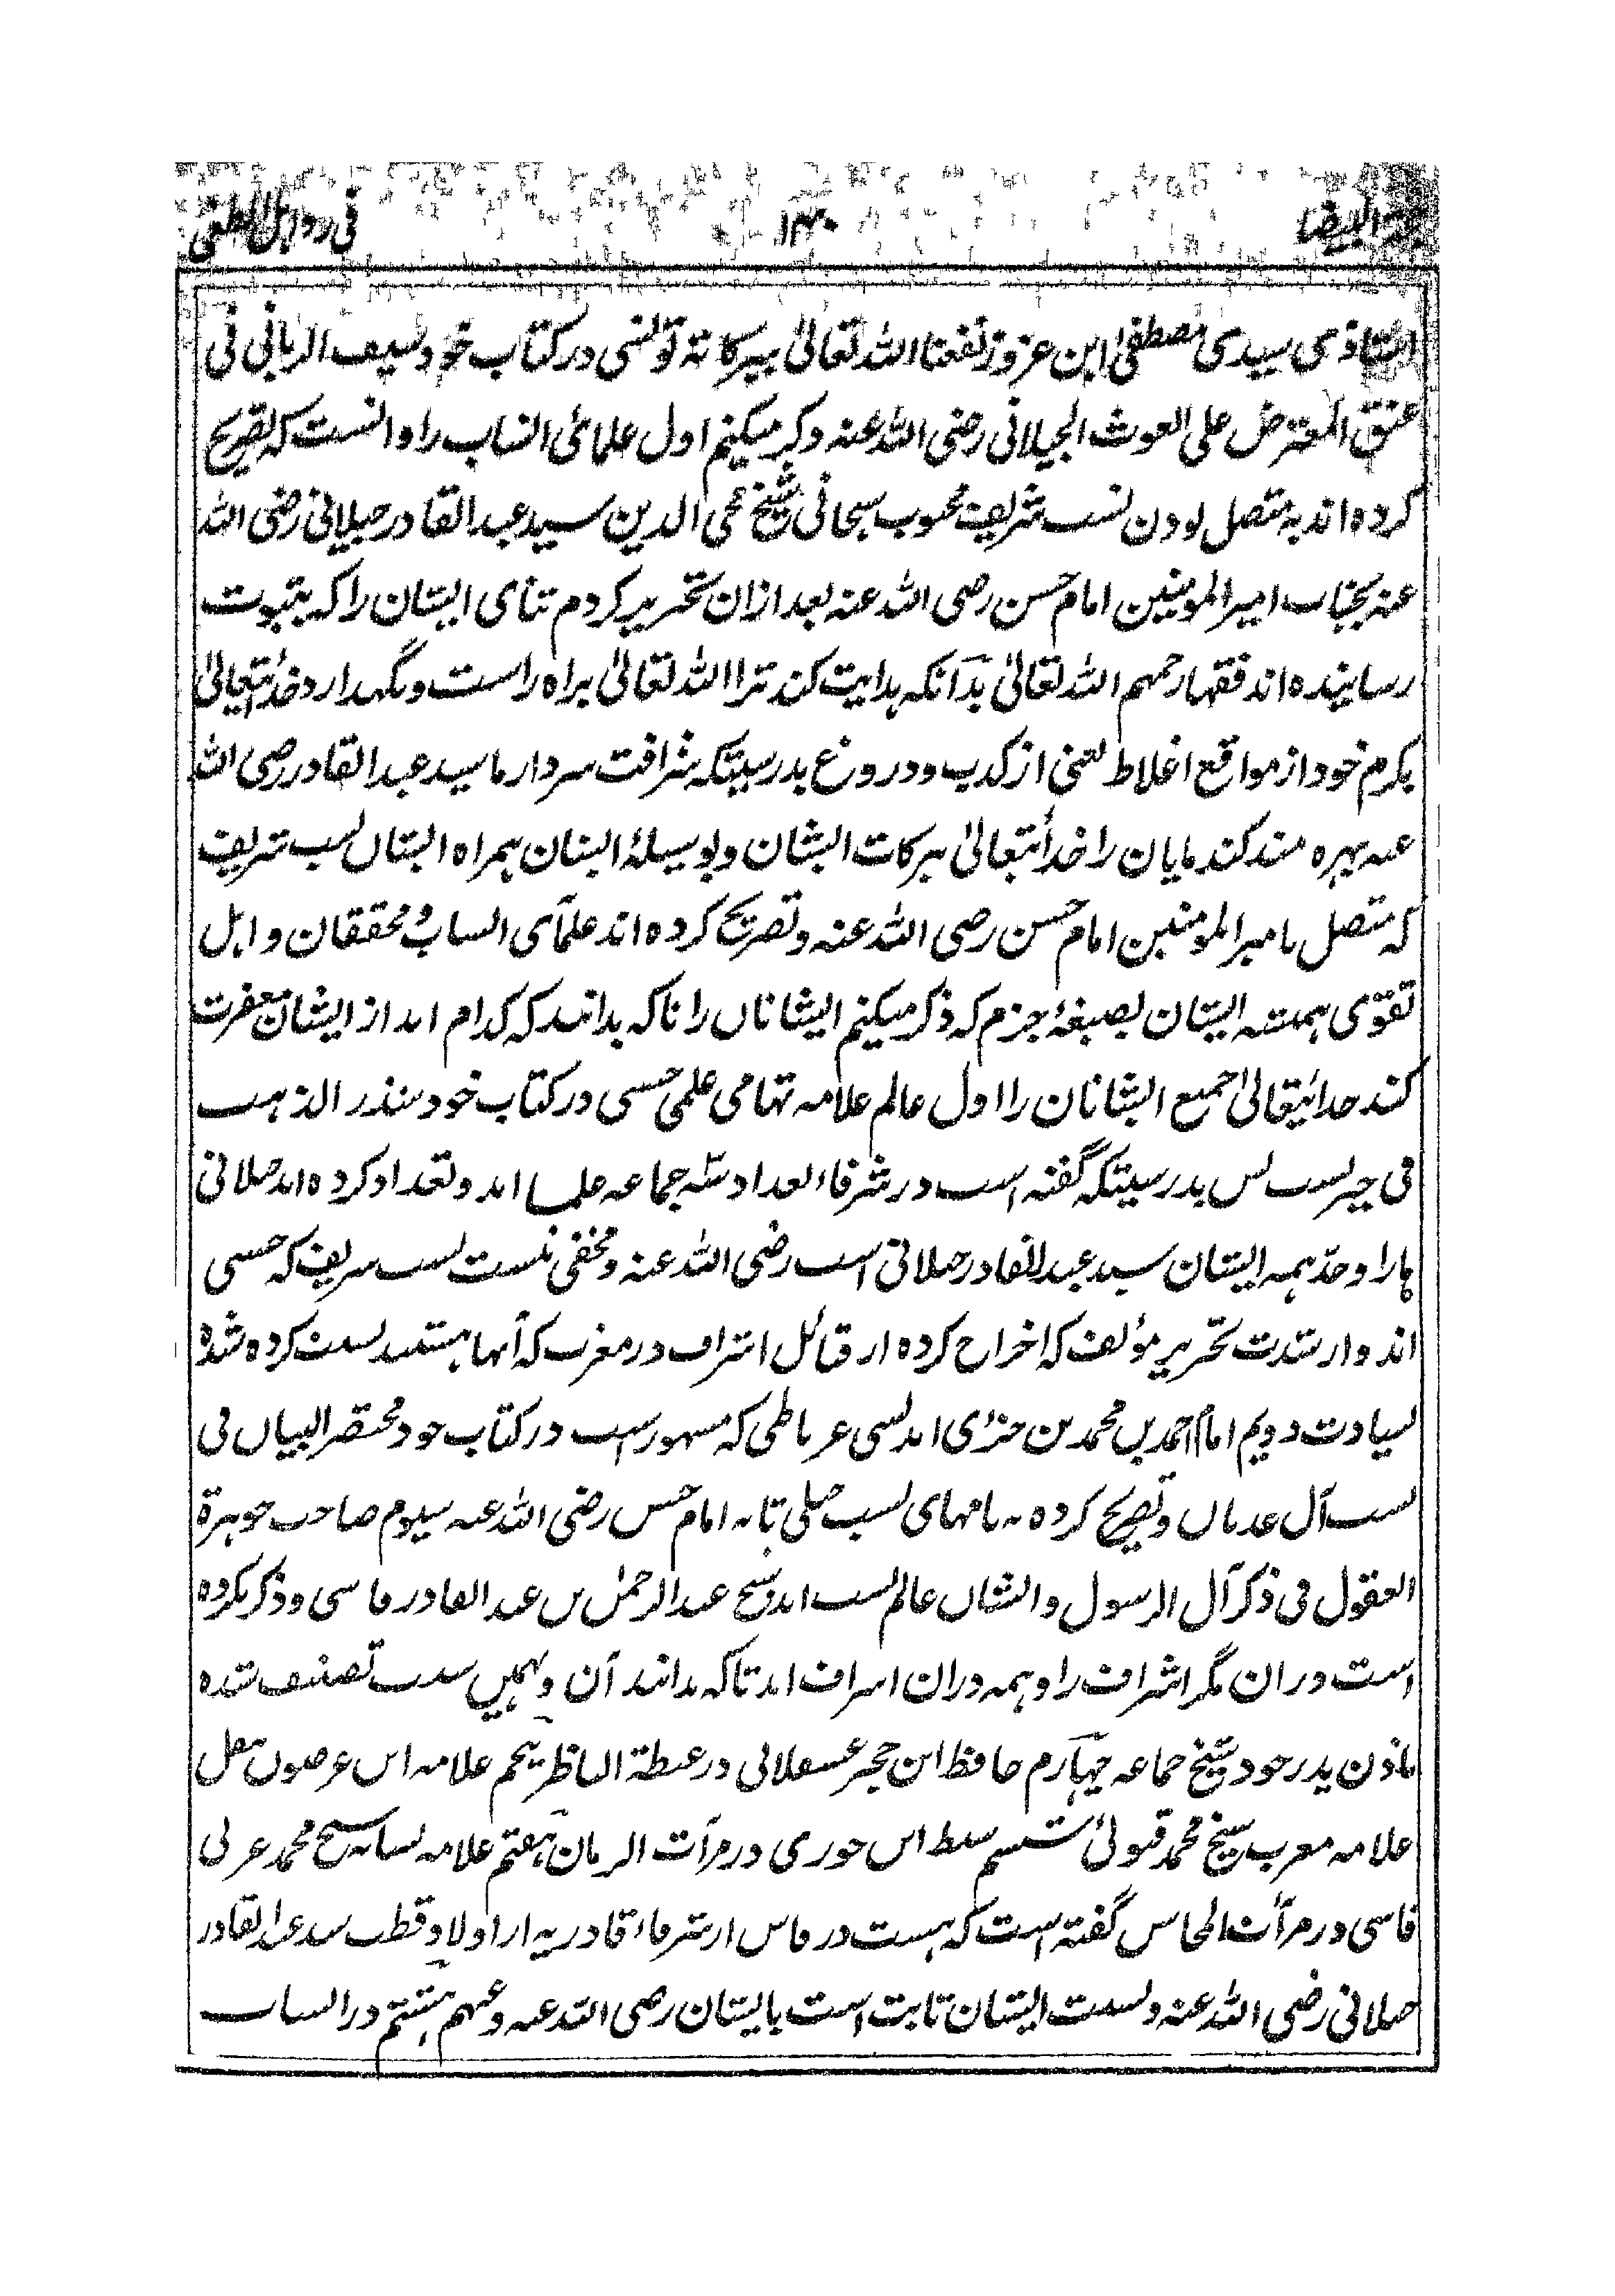 البیضا ۱۳۰ فی رد اہل
استاذی سیدی مصطفیٰ ابن عزوز نفعنا اللہ تعالیٰ ببرکاتہ تونسی در کتاب خود سیف الربانی فی
عنق المعترض علی الغوث الجیلانی رضی اللہ عنہ ذکر میکنم اول علمائی انساب را دانست کہ تصریح
کردہ اند بہ متصل بودن نسب شریف محبوب سبحانی شیخ محی الدین سید عبد القادر جیلانی رضی اللہ
عنہ بجناب امیر المومنین امام حسن رضی اللہ عنہ بعد ازان تحریر کردم ثنای ایشان را کہ بثبوت
رسانیدہ اند فقہا رحمہم اللہ تعالیٰ بدآنکہ ہدایت کند ترا اللہ تعالیٰ براہ راست و نگہدارد خدائتعالیٰ
بکرم خود از مواقع اغلاط یعنی از کذب و دروغ بدرستیکہ شرافت سردار ما سید عبد القادر رضی اللہ
عنہ بہرہ مند کند مایان را خدائتعالیٰ ببرکات ایشان و بوسیلۂ ایشان ہمراہ ایشان نسب شریف
کہ متصل بامیر المومنین امام حسن رضی اللہ عنہ و تصریح کردہ اند علمآی انساب و محققان و اہل
تقوّی ہمہ ایشان بصیغۂ جزم کہ ذکر میکنم ایشانان را تاکہ بدانند کہ کدام اند از ایشان مغفرت
کند خدائتعالیٰ جمیع ایشانان را اول عالم علامہ تہامی علمی حسنی در کتاب خود شذر الذہب
فی خیر نسب پس بدرستیکہ گفتہ است در شرفاء تعداد جماعہ علما اند و تعداد کردہ اند جیلانی
ہا را و جدّ ہمہ ایشان سید عبد القادر جیلانی است رضی اللہ عنہ و مخفی نیست نسب شریف کہ حسنی
اند و از شدت تحریر مؤلف کہ اخراج کردہ از قبائل اشراف در مغرب کہ آنہا نسبت کردہ شدہ
بسیادت دویم امام احمد بن محمد بن جزئی اندلسی غرناطی کہ مشہور است در کتاب خود مختصر البیان فی
نسب آل عدنان و تصریح کردہ بہ نامہای نسب جیلی تا بہ امام حسن رضی اللہ عنہ سیوم صاحب جوہرۃ
العقول فی ذکر آل الرسول و ایشان عالم نسب اند شیخ عبد الرحمٰن بن عبد القادر فاسی و ذکر نکردہ
است در ان مگر اشراف را و ہمہ دران اشراف اند تاکہ بدانند آن و ہمیں سبب تصنیف شدہ
باذن پدر خود شیخ جماعہ چہارم حافظ ابن حجر عسقلانی در غبطة الناظر پنجم علامہ ابن عرضون نقل
علامہ مغرب شیخ محمد قبولئ ششم سبط ابن جوزی در مرآت الزمان ہفتم علامہ نسابہ شیخ محمد عربی
فاسی در مرآت المحاسن گفتہ است کہ ہست در فاس از شرفاء قادریہ از اولاد قطب سید عبد القادر
جیلانی رضی اللہ عنہ و نسبت ایشان ثابت است بایشان رضی اللہ عنہ و عنہم ہشتم در انساب